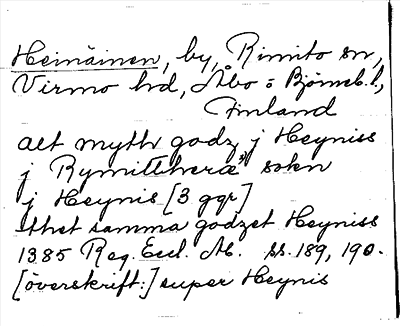 Heinäinen, by, Rimito sn,
Virmo hd, Åbo o Björneb. l.,
Finland
alt myth godz j Heyniss
j Rymitthæræ sokn
j Heynis [3 ggr]
thet samma godzet Heyniss
1385 Reg. Eccl. Ab. ss. 189, 190.
[överskrift:] super Heynis